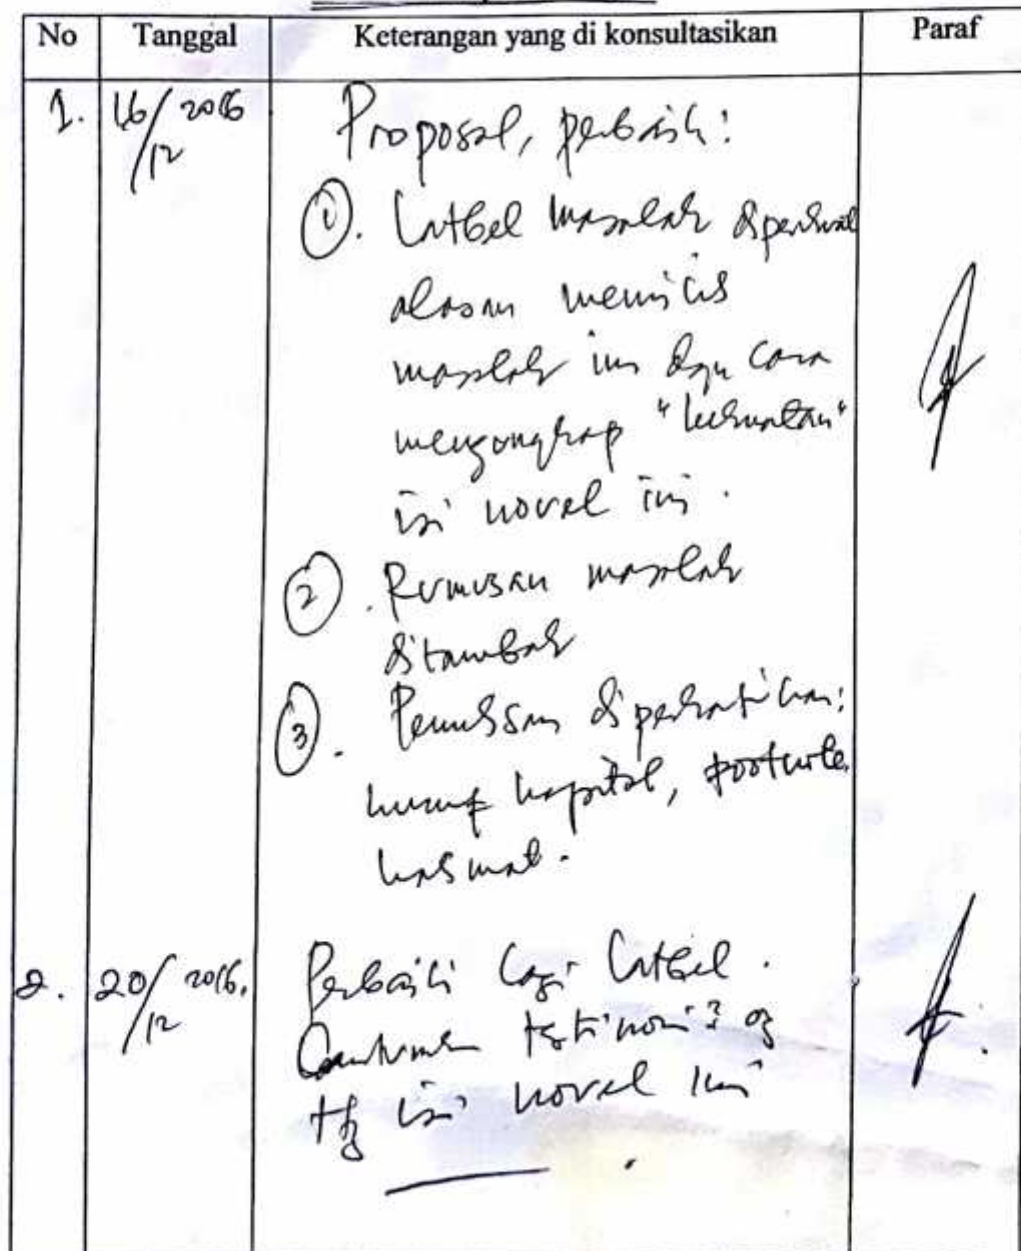 No Tanggal Keterangan yang di konsultasikan Paraf
1. 16/12 2016 Proposal, perbaiki:
①. Latbel masalah diperkuat
alasan menulis
masalah ini dgn cara
mengungkap "kekuatan"
isi novel ini.
②. Rumusan masalah
ditambah
③. Penulisan diperhatikan:
huruf kapital, footnote,
kalimat.
2. 20/12 2016. Perbaiki lagi Latbel.
Cantumkan testimoni²
ttg isi novel ini
.